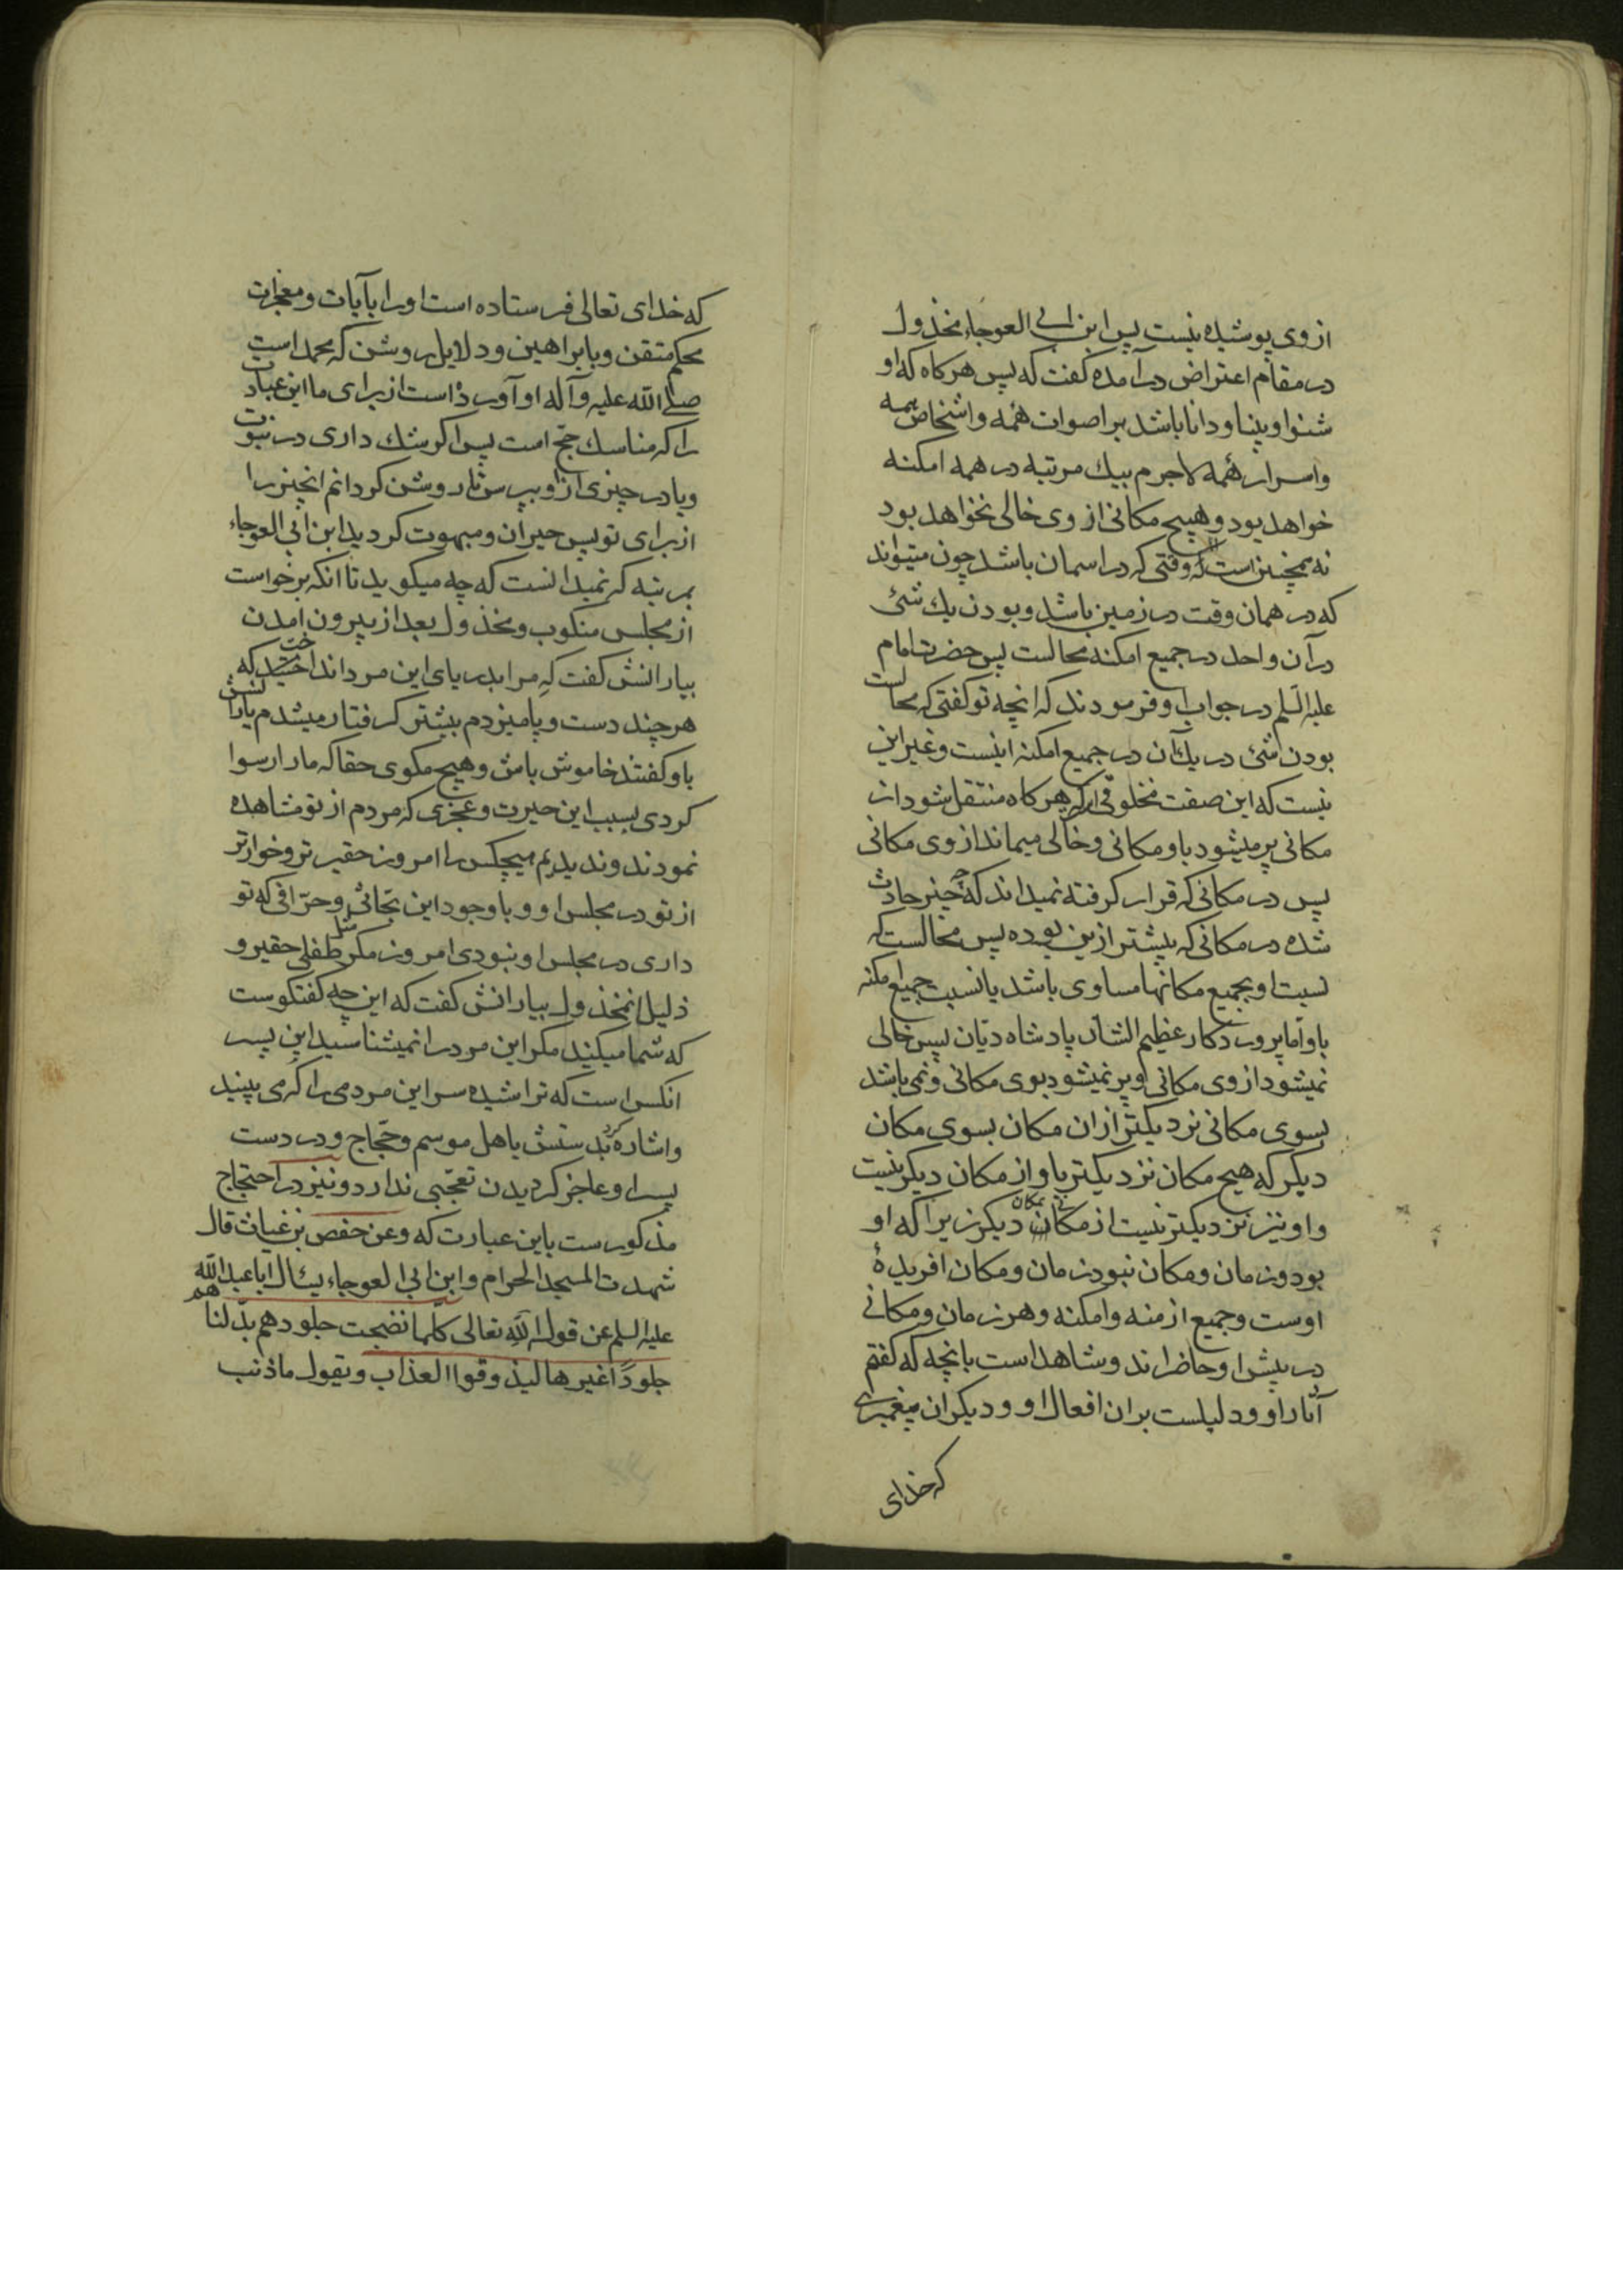 از وی پوشیده نیست پس ابن ابی العوجاء مخذول
در مقام اعتراض درآمده کفت که پس هرکاه که او
شنوا و بینا و دانا باشد بر اصوات همه و اشخاص همه
و اسرار همه لاجرم بیک مرتبه در همه امکنه
خواهد بود و هیچ مکانی از وی خالی نخواهد بود
نه همچنین است که وقتی که در اسمان باشد چون میتواند
که در همان وقت در زمین باشد و بودن یک شئ
در آن واحد در جمیع امکنه محالست پس حضرت امام
علیه السلم در جواب او فرمودند که انچه تو کفتی که محالست
بودن شئ در یک آن در جمیع امکنه اینست و غیر این
نیست که این صفت مخلوقی که هرکاه منتقل شود از
مکانی پر میشود باو مکانی و خالی میماند از وی مکانی
پس در مکانی که قرار کرفته نمیداند که چه چیز حادث
شده در مکانی که پیشتر ازین بوده پس محالست که
نسبت او بجمیع مکانها مساوی باشد یا نسبت جمیع امکنه
باو و اما پروردکار عظیم الشان پادشاه دیان پس خالی
نمیشود از وی مکانی و پر نمیشود بوی مکانی و نمی باشد
بسوی مکانی نزدیکتر از ان مکان بسوی مکان
دیکر که هیچ مکان نزدیکتر باو از مکان دیکر نیست
و او نیز نزدیکتر نیست از مکانی بمکان دیکر زیرا که او
بود و زمان و مکان نبود زمان و مکان افریدهٔ
اوست و جمیع ازمنه و امکنه و هر زمان و مکانی
در پیش او حاضراند و شاهد است بانچه که کفتم
آثار او و دلیلست بران افعال او و دیکر ان پیغمبری
که خدای
که خدای تعالی فرستاده است او را بآیات و معجزات
محکم متقن و با براهین و دلایل روشن که محمد است
صلی الله علیه و آله او آورده است از برای ما این عبادت
را که مناسک حج است پس اکر شک داری در نبوت
و یا در چیزی از او بپرس تا روشن کردانم انچیز را
از برای تو پس حیران و مبهوت کردید ابن ابی العوجاء
بمرتبه که نمیدانست که چه میکوید تا انکه برخواست
از مجلس منکوب و مخذول بعد از بیرون امدن
بیارانش کفت که مرا بدریای این مرد انداختید که
هر چند دست و پا میزدم بیشتر کرفتار میشدم یارانش
باو کفتند خاموش باش و هیچ مکوی حقا که ما را رسوا
کردی بسبب این حیرت و عجزی که مردم از تو مشاهده
نمودند و ندیدیم هیچکس را امروز حقیر تر و خوارتر
از تو در مجلس او و با وجود این بحّاثی و حرّافی که تو
داری در مجلس او نبودی امروز مکر مثل طفلی حقیر و
ذلیل ان مخذول بیارانش کفت که این چه کفتکوست
که شما میکنید مکر این مرد را نمیشناسید این پسر
انکس است که تراشیده سر این مردمی را که می بینید
و اشاره کرد بدستش باهل موسم و حجّاج و در دست
پسر او عاجز کردیدن تعجّبی ندارد و نیز در احتجاج
مذکورست باین عبارت که و عن حفص بن غیاث قال
شهدت المسجد الحرام و ابن ابی العوجاء یسئال اباعبدالله
علیه السلم عن قول الله تعالی کلما نضجت جلودهم بدّلناهم
جلوداً غیرها لیذوقوا العذاب و یقول ما ذنب